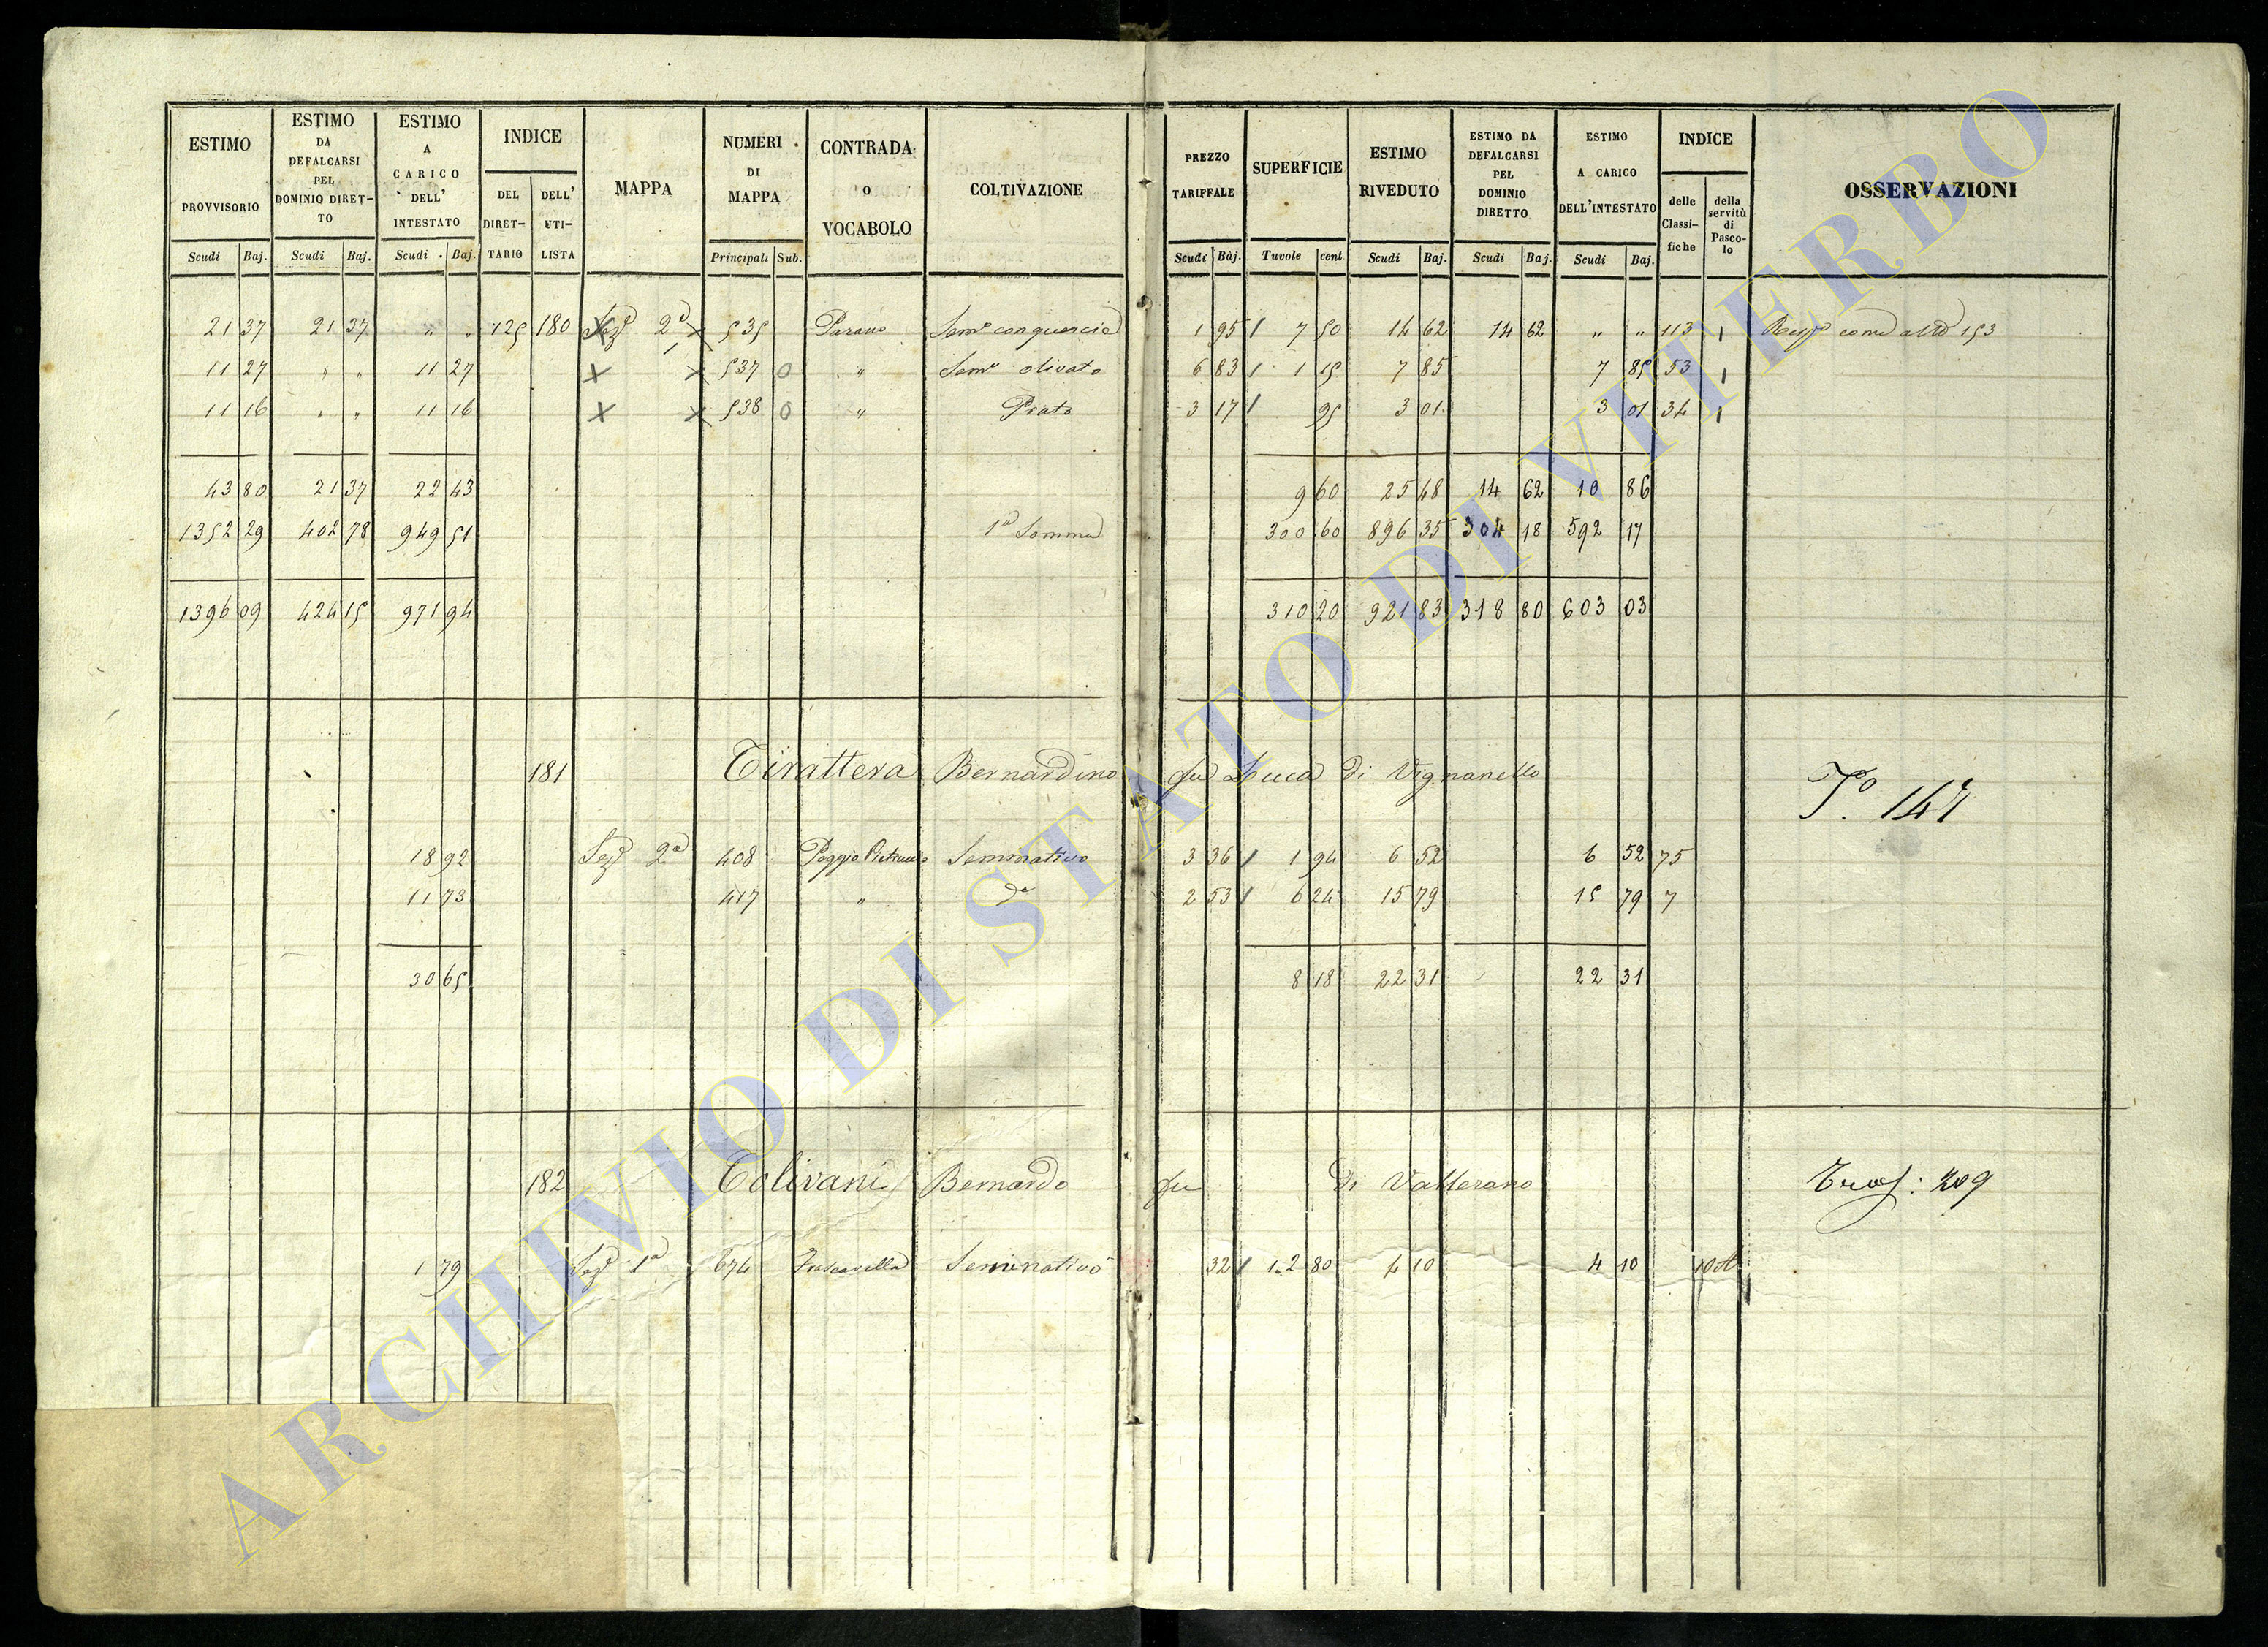 ESTIMO PROVVISORIO Scudi Baj.
ESTIMO DA DEFALCARSI PEL DOMINIO DIRET-TO Scudi Baj.
ESTIMO A CARICO DELL' INTESTATO Scudi Baj.
INDICE DEL DIRET-TARIO DELL' UTI-LISTA
MAPPA
NUMERI DI MAPPA Principali Sub.
CONTRADA O VOCABOLO
COLTIVAZIONE
PREZZO TARIFFALE Scudi Baj.
SUPERFICIE Tavole cent
ESTIMO RIVEDUTO Scudi Baj.
ESTIMO DA DEFALCARSI PEL DOMINIO DIRETTO Scudi Baj.
ESTIMO A CARICO DELL'INTESTATO Scudi Baj.
INDICE delle Classi-fiche della servitù di Pasco-lo
OSSERVAZIONI
21 37 21 37 " " 125 180 Sezᵉ 2ᵃ x 535 Parano Semᵒ con quercia 1 95 / 7 50 14 62 14 62 " " 113 come 153
11 27 " " 11 27 x x 537 0 " Semᵒ olivato 6 83 / 1 15 7 85 7 85 53
11 16 " " 11 16 x x 538 0 " Prato 3 17 / 95 3 01 3 01 34
43 80 21 37 22 43 9 60 25 48 14 62 10 86
1352 29 402 78 949 51 1ᵃ Somma 300 60 896 35 304 18 592 17
1396 09 424 15 971 94 310 20 921 83 318 80 603 03
181 Tirattera Bernardino fu Luca di Vignanello
Tº. 147
18 92 Sezᵉ 2ᵃ 408 Poggio Seminativo 3 36 / 1 94 6 52 6 52 75
11 73 417 " dᵒ 2 53 / 6 24 15 79 15 79 7
30 65 8 18 22 31 22 31
182 Tolivani Bernardo fu di Vallerano
209
1 79 Sezᵉ 1ᵃ 674 Seminativo 32 / 12 80 4 10 4 10
ARCHIVIO DI STATO DI VITERBO